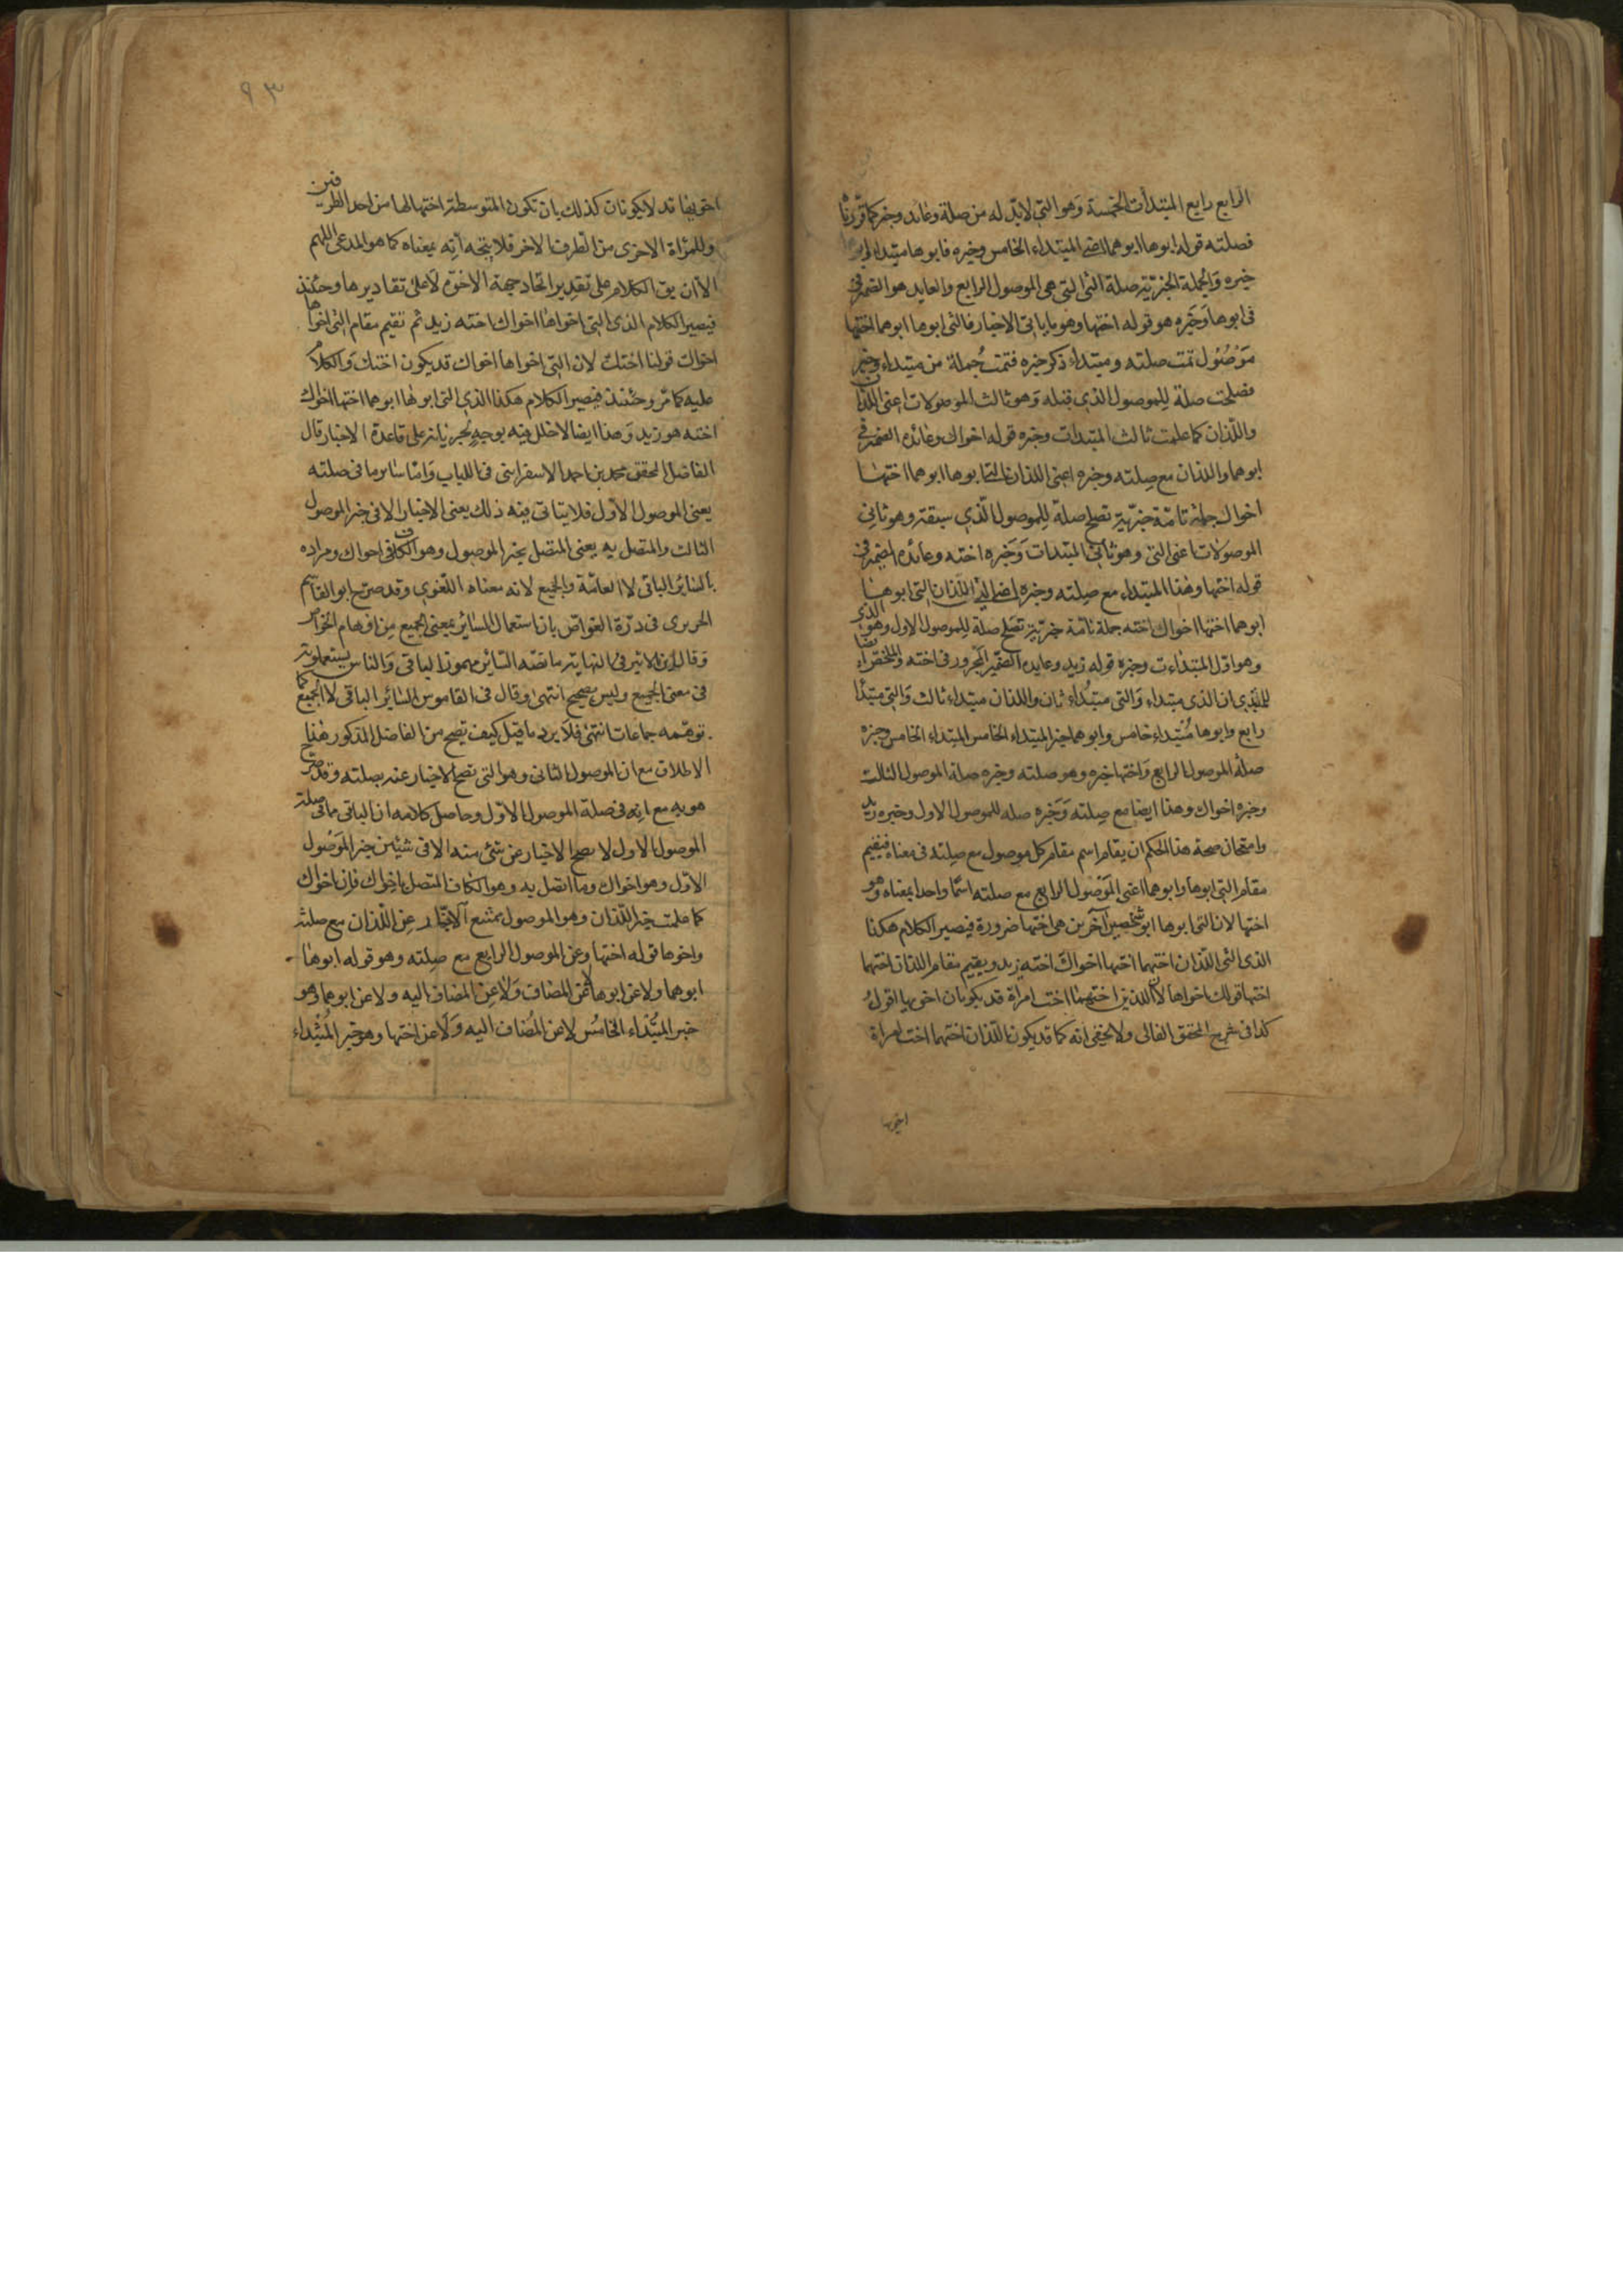 الرابع رابع المبتدأت الخمسة وهو التى لابد له من صلة وعايد وخبر كما قررنا
فصلته قوله ابوها ابوهما اعنى المبتداء الخامس وخبره فابوها مبتداء ابوهما
خبره والجملة الخبرية صلة التى التى هى الموصول الرابع والعايد هو الضمير فى
فى ابوها وخبره هو قوله اختها وهو ياباتى الاخبار فالتى ابوها ابوهما اختها
موصول تمت صلته ومبتداء ذكر خبره فتمت جملة من مبتداء وخبر
فصلحت صلة للموصول الذى قبله وهو ثالث الموصولات اعنى اللذان
واللذان كما علمت ثالث المبتدات وخبره قوله اخواك وعائده الضمير فى
ابوهما واللذان مع صلته وخبره اعنى اللذان التى ابوها ابوهما اختها
اخواك جملة تامة خبرية تصلح صلة للموصول الذى سبقته وهو ثانى
الموصولات اعنى التى وهو ثانى المبتدات وخبره اخته وعائده الضمير فى
قوله اختها وهذا المبتداء مع صلته وخبره اعنى التى اللذان التى ابوها
ابوهما اختها اخواك اخته جملة تامة خبرية تصلح صلة للموصول الاول وهو الذى
وهو اول المبتداءت وخبره قوله زيد وعايده الضمير المجرور فى اخته والملخص ايضا
للمبتدى ان الذى مبتداء والتى مبتداء ثان واللذان مبتداء ثالث والتى مبتدأ
رابع وابوها مبتداء خامس وابوهما خبر المبتداء الخامس المبتداء الخامس وخبره
صلة الموصول الرابع واختها خبره وهو صلته وخبره صلة الموصول الثالث
وخبره اخواك وهذا ايضا مع صلته وخبره صله للموصول الاول وخبره زيد
وامتحان صحة هذا الحكم ان يقام اسم مقام كل موصول مع صلته فى معناه فيقيم
مقام التى ابوها وابوهما اعنى الموصول الرابع مع صلته اسما واحدا بمعناه وهو
اختها لان التى ابوها ابو شخصين آخرين هى اختهما ضرورة فيصير الكلام هكذا
الذى التى اللذان اختهما اختها اخواك اخته زيد ويقيم مقام اللذان اختهما
اختها قولك اخواها لان اللذين اختهما اخت امراة قد يكونان اخويها اقول
كذا فى شرح المحقق الفالى ولا يخفى انه كما قد يكون اللذان اختهما اخت امراة
اخويها
٩٣
اخويها قد لا يكونان كذلك بان تكون المتوسطة اختهما لها من احد الطرفين
وللمرأة الاخرى من الطرف الاخر فلا يتجه انه بمعناه كما هو المدعى اللهم
الا ان يق الكلام على تقدير اتحاد جهة الاخوة لا على تقاديرها وحينئذ
فيصير الكلام الذى التى اخواها اخواك اخته زيد ثم تقيم مقام التى اخواها
اخواك قولنا اختك لان التى اخواها اخواك قد يكون اختك والكلام
عليه كما مر وحينئذ فيصير الكلام هكذا الذى التى ابوها ابوهما اختها اخواك
اخته هو زيد وهذا ايضا لا خلل فيه بوجه لجريانه على قاعدة الاخبار قال
الفاضل المحقق محمد بن احمد الاسفراينى فى اللباب واما سايرما فى صلته
يعنى الموصول الاول فلا يتاتى فيه ذلك يعنى الاخبار الا فى خبر الموصول
الثالث والمتصل به يعنى المتصل بخبر الموصول وهو الكاف فى اخواك ومراده
بالساير الباقى لا العامة والجميع لانه معناه اللغوى وقد صرح ابو القاسم
الحريرى فى درة الغواص بان استعمال الساير بمعنى الجميع من اوهام الخواص
وقال ابن الاثير فى النهاية ما نصه الساير مهموزا الباقى والناس يستعملونه
فى معنى الجميع وليس بصحيح انتهى وقال فى القاموس الساير الباقى لا الجميع كما
توهمه جماعات انتهى فلا يرد ما قيل كيف يصح من الفاضل المذكور هذا
الاطلاق مع ان الموصول الثانى وهو التى تصح الاخبار عنه بصلته وقد صرح
هو به مع انه فى صلة الموصول الاول وحاصل كلامه ان الباقى مما فى صلة
الموصول الاول لا يصح الاخبار عن شئ منه الا فى شيئين خبر الموصول
الاول وهو اخواك وما اتصل به وهو الكاف المتصل باخواك فان اخواك
كما علمت خبر اللذان وهو الموصول يمتنع الاخبار عن اللذان مع صلته
واخوها قوله اختها وعن الموصول الرابع مع صلته وهو قوله ابوها
ابوهما ولا عن ابوها لا عن المضاف ولا عن المضاف اليه ولا عن ابوهما وهو
خبر المبتداء الخامس لا عن المضاف اليه ولا عن اختها وهو خبر المبتداء